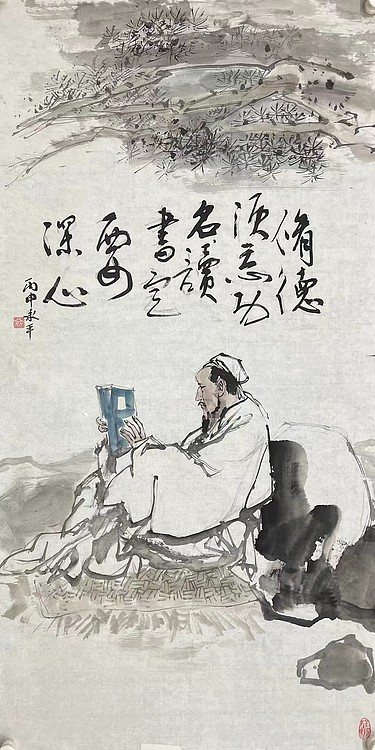 脩德
須忘功
名讀
書定
要
深心
丙申永平